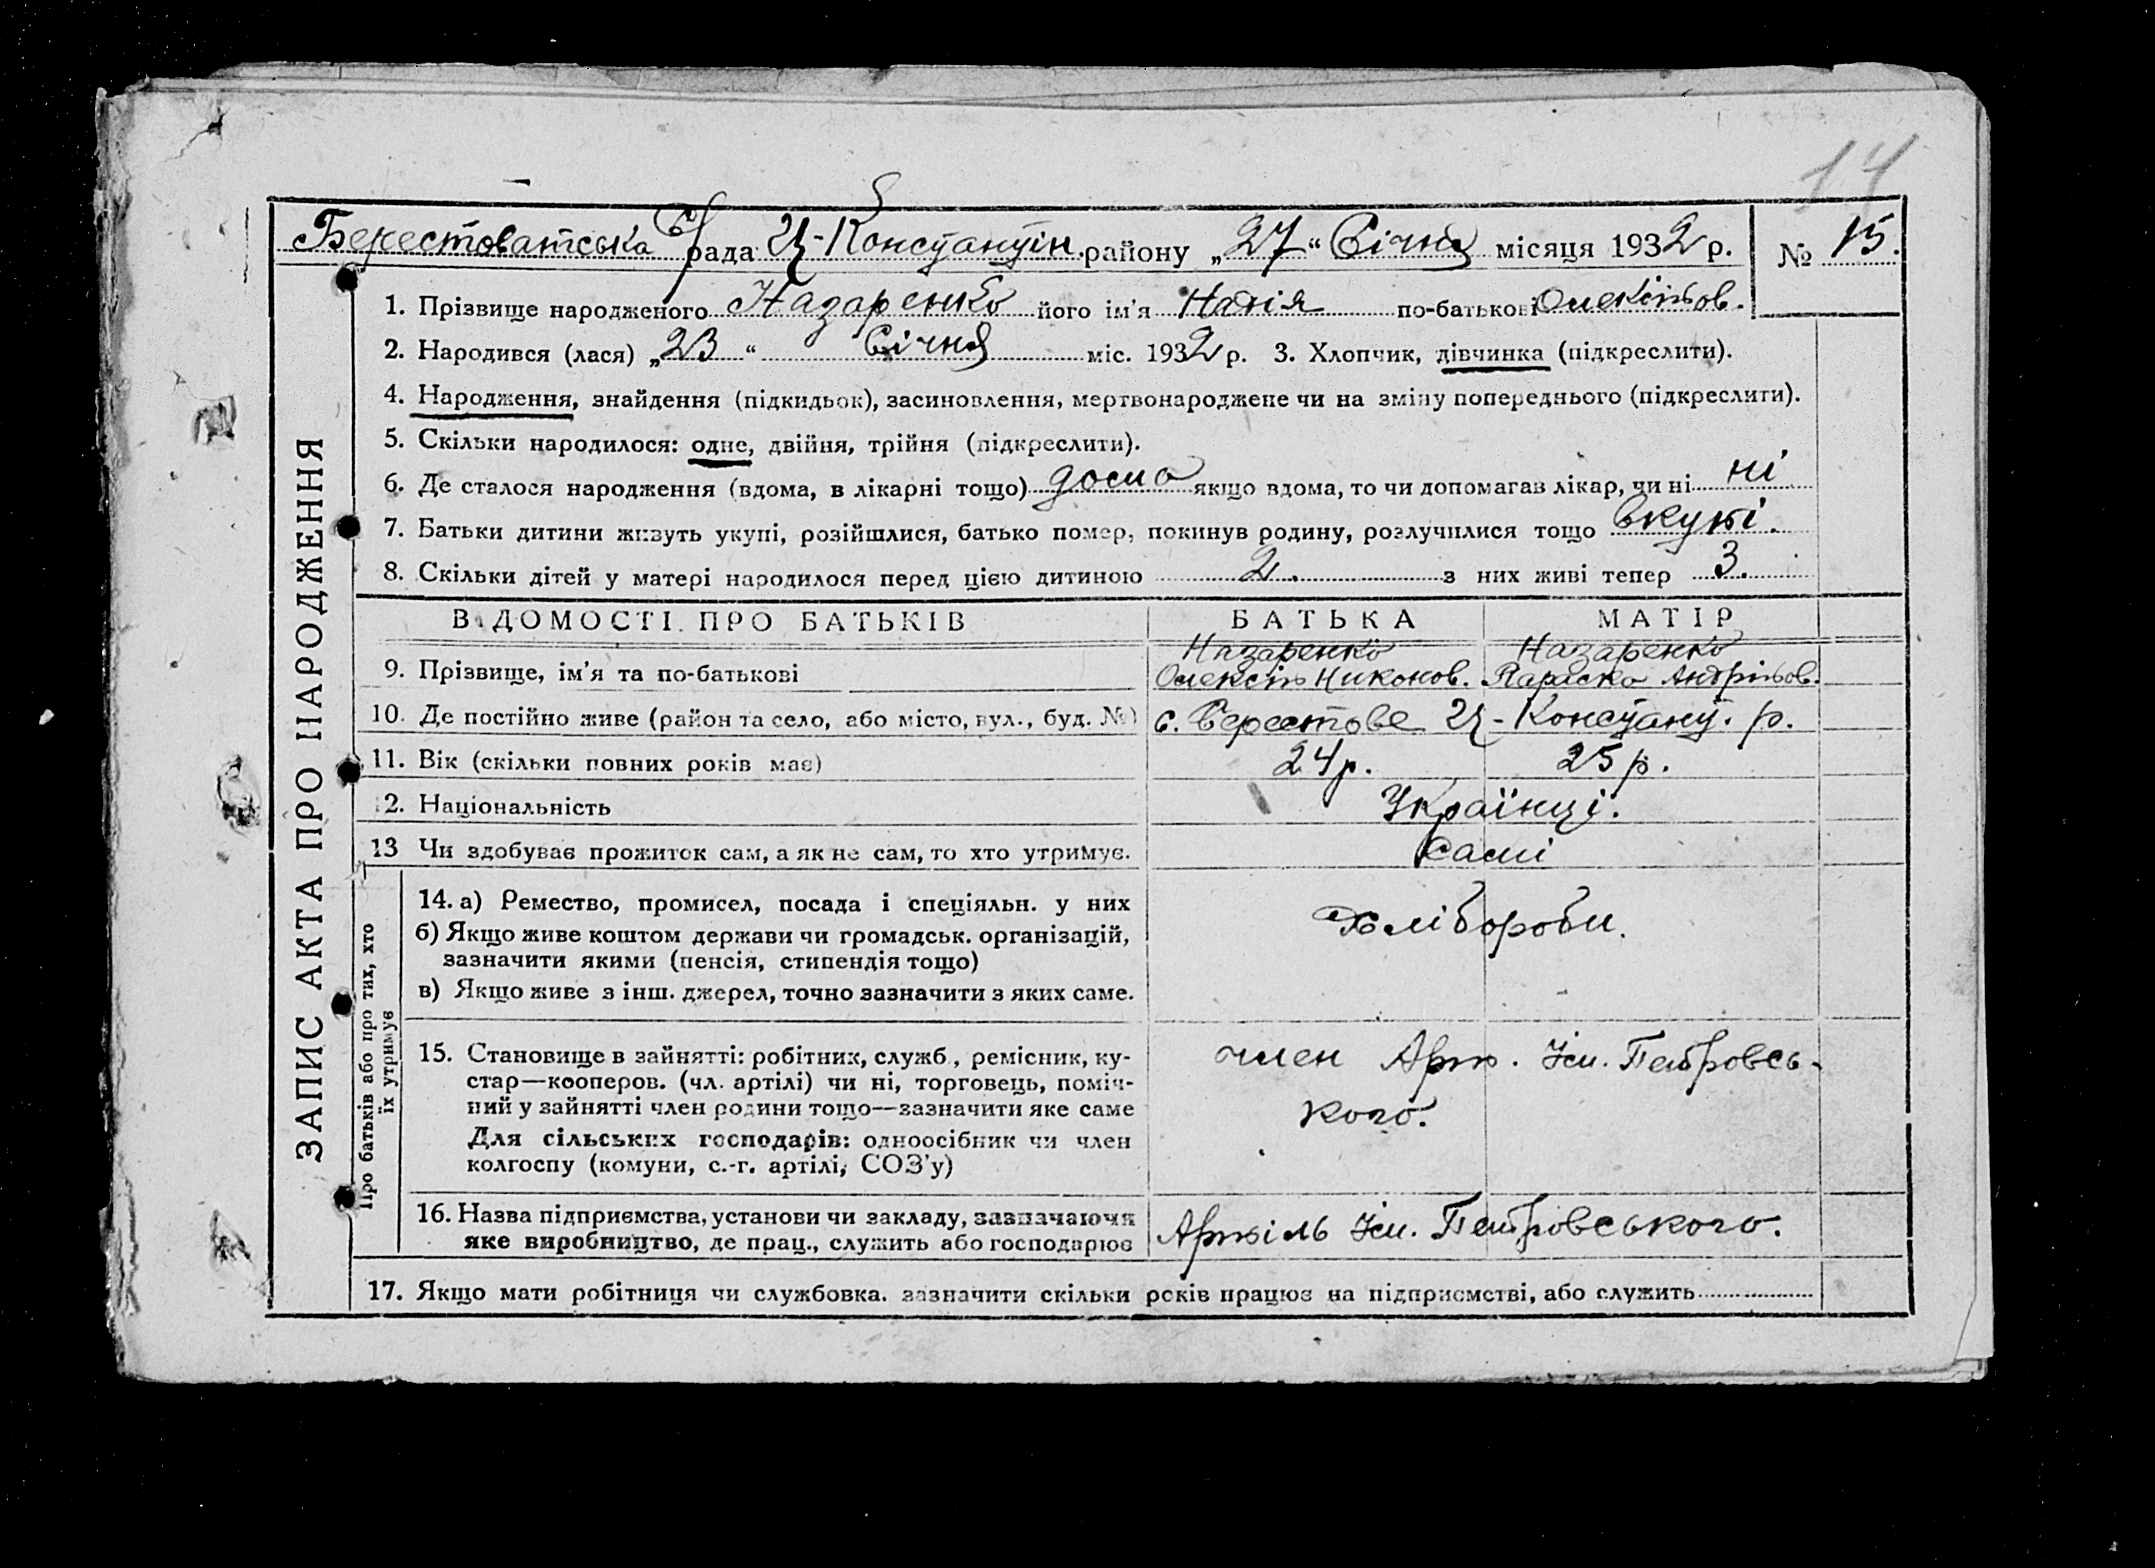 14
Берестоватська с/рада Ц-Констянтін. району „27“ Січня місяця 1932 р. № 15.
ЗАПИС АКТА ПРО НАРОДЖЕННЯ
1. Прізвище народженого Назаренко його ім'я Надія по-батькові Олексіьов.
2. Народився (лася) „23“ Січня міс. 1932 р. 3. Хлопчик, дівчинка (підкреслити).
4. Народження, знайдення (підкидьок), засиновлення, мертвонароджене чи на зміну попереднього (підкреслити).
5. Скільки народилося: одне, двійня, трійня (підкреслити).
6. Де сталося народження (вдома, в лікарні тощо) дома якщо вдома, то чи допомагав лікар, чи ні ні
7. Батьки дитини живуть укупі, розійшлися, батько помер, покинув родину, розлучилися тощо вкупі.
8. Скільки дітей у матері народилося перед цією дитиною 2. з них живі тепер 3.
ВІДОМОСТІ ПРО БАТЬКІВ БАТЬКА МАТІР
Назаренко Назаренко
9. Прізвище, ім'я та по-батькові Олексій Никонов. Параска Андріьов.
10. Де постійно живе (район та село, або місто, вул., буд. №) с. Берестове Ц-Констянт. р.
11. Вік (скільки повних років має) 24 р. 25 р.
12. Національність Українці.
13 Чи здобуває прожиток сам, а як не сам, то хто утримує. самі
Про батьків або про тих, хто
їх утримує
14. а) Ремество, промисел, посада і спеціяльн. у них
Хлібороби.
б) Якщо живе коштом держави чи громадськ. організацій,
зазначити якими (пенсія, стипендія тощо)
в) Якщо живе з інш. джерел, точно зазначити з яких саме.
15. Становище в зайнятті: робітник, служб., ремісник, ку- член Арт. Ім. Петровсь-
стар—кооперов. (чл. артілі) чи ні, торговець, поміч-
ний у зайнятті член родини тощо—зазначити яке саме кого.
Для сільських господарів: одноосібник чи член
колгоспу (комуни, с.-г. артілі, СОЗ'у)
16. Назва підприємства, установи чи закладу, зазначаючи Артіль Ім. Петровського.
яке виробництво, де прац., служить або господарює
17. Якщо мати робітниця чи службовка. зазначити скільки років працює на підприємстві, або служить